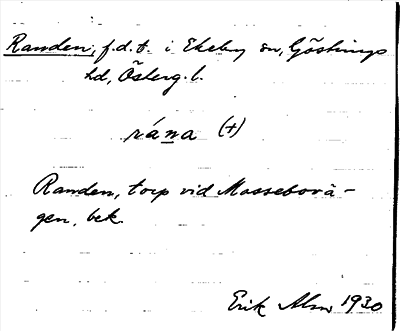 Randen, f.d.t. i Ekeby sn, Göstrings
hd, Österg. l.
rána (+)
Randen, torp vid Mosseborä-
gen, bek.
Erik Alm 1930